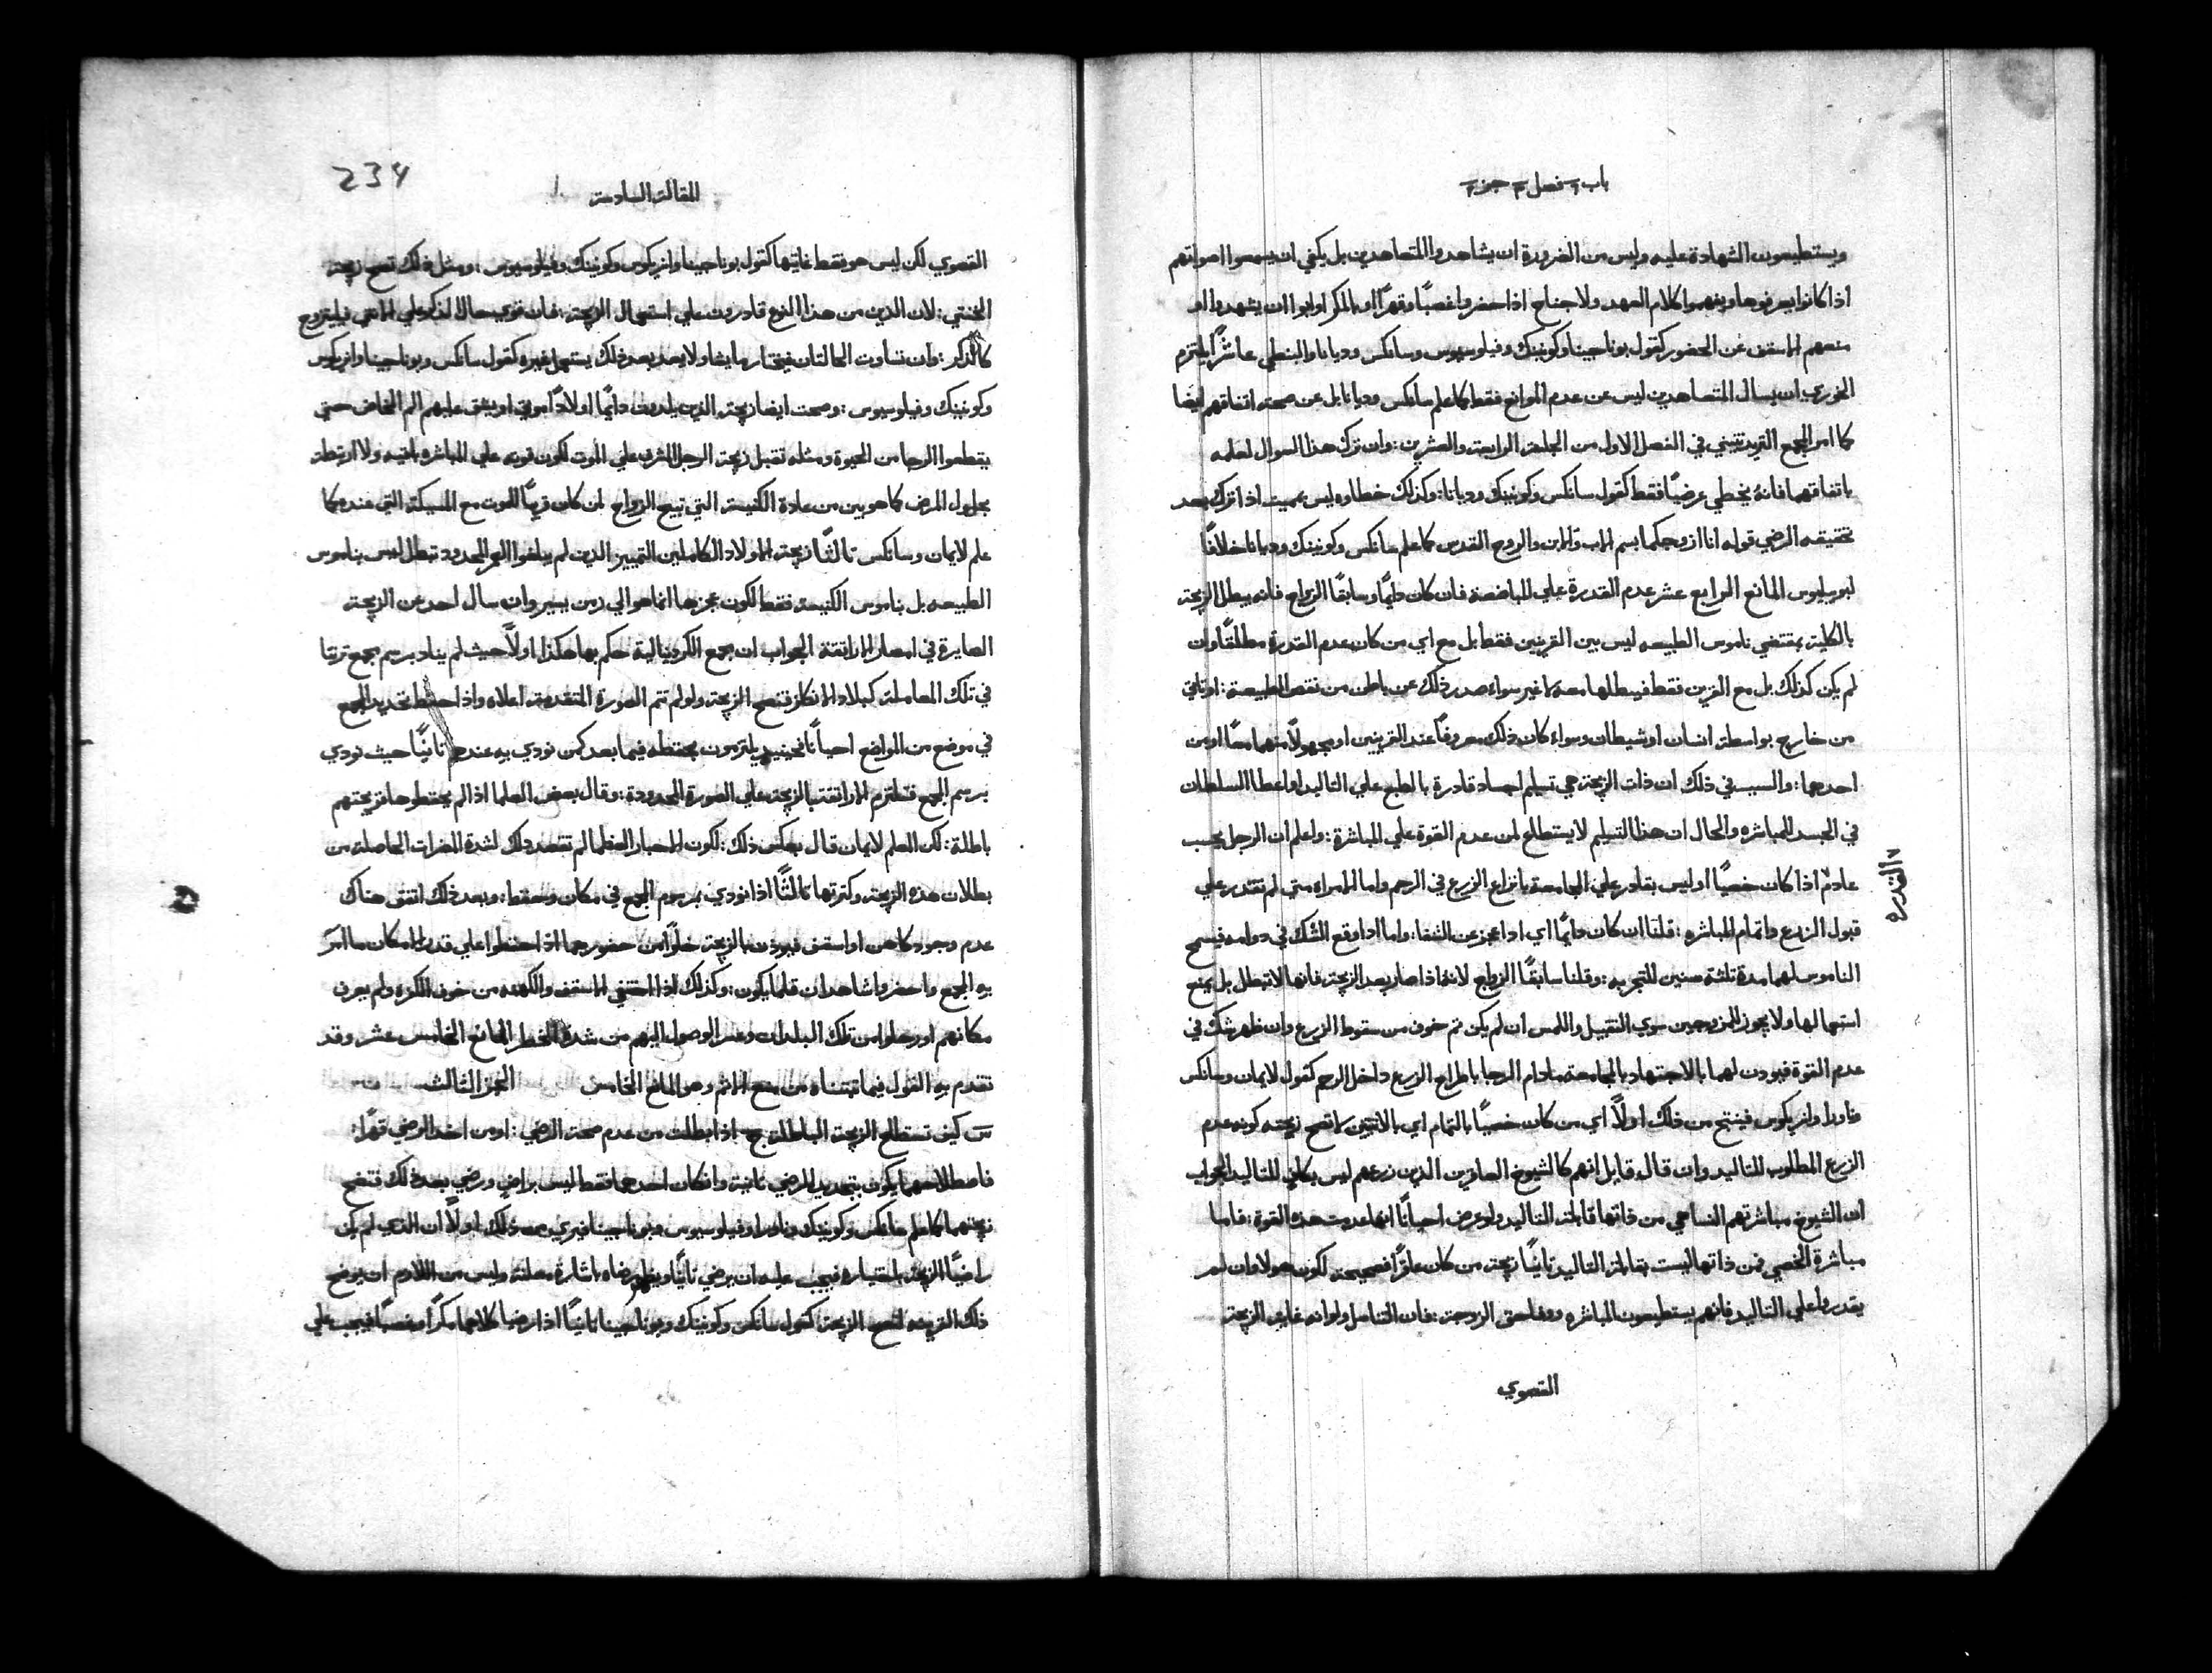 باب ٢ فصل ٣ جزء ٢
ويستطيعون الشهادة عليه وليس من الضرورة ان يشاهدوا المتعاهدين بل يكفي ان يسمعوا اصواتهم
اذا كانوا يعرفونها ويفهموا كلام العهد ولا جناح اذا حضروا غصبًا وقهرًا او بالمكر او ابوا ان يشهدوا او
منعهم الاسقف عن الحضور كقول بوناجينا وكونينك وفيلوسيوس وسانكس وديانا والبنطي عاشرًا يلتزم
الخوري ان يسال المتعاهدين ليس عن عدم الموانع فقط كما علم سانكس وديانا بل عن صحة اتفاقهم ايضا
كما امر المجمع التريدنتيني في الفصل الاول من الجلسة الرابعة والعشرين : وان ترك هذا السوال لعلمه
باتفاقهما فانه يخطي عرضيًا فقط كقول سانكس وكونينك وديانا : وكذلك خطاوه ليس بمميت اذا ترك بعد
تحقيقه الرضي قوله انا ازوجكما بسم الاب والابن والروح القدس كما علم سانكس وكونينك وديانا خلافًا
لبوسيوس المانع الرابع عشر عدم القدرة علي المباضعة فان كان دايمًا وسابقًا الزواج فانه يبطل الزيجة
بالكلية بمقتضي ناموس الطبيعه ليس بين القرينين فقط بل مع اي من كان عدم القدرة مطلقًا وان
لم يكن كذلك بل مع القرين فقط فيبطلها معه لا غير سواء صدر ذلك عن باطن من نقص الطبيعة : او تاتي
من خارج بواسطة انسان او شيطان وسواء كان ذلك معروفًا عند القرينين او مجهولًا منهما معًا او من
احدهما : والسبب في ذلك ان ذات الزيجة هي تسليم اجساد قادرة بالطبع علي التاليد او اعطا السلطان
في الجسد للمباشره والحال ان هذا التسليم لا يستطاع لمن عدم القوة علي المباشرة : واعلم ان الرجل يحسب
عادم اذا كان خصيًا او ليس بقادر علي المجامعة بانزاع الزرع في الرحم واما المراه متي لم تقدر علي
القدره
قبول الزرع واتمام المباشره : قلنا ان كان دايمًا اي اذا عجز عن الشفا : واما اذا وقع الشك في دوامه فيسمح
الناموس لهما مدة ثلثة سنين للتجربه : وقلنا سابقًا الزواج لانه اذا صار بعد الزيجة فانها لا تبطل بل يمنع
استعمالها ولا يجوز للمزوجين سوي التقبيل واللمس ان لم يكن ثم خوف من سقوط الزرع وان ظهر شك في
عدم القوة فيوذن لهما بالاجتهاد بالمجامعة مادام الرجا باطراح الزرع داخل الرحم كقول لايمان وسانكس
وانريكوس فينتج من ذلك اولًا اي من كان خصيًا بالتمام اي بالانثيين لا تصح زيجته كونه عدم
الزرع المطلوب للتاليد وان قال قايل انهم كالشيوخ العاقرين الذين زرعهم ليس بكافي للتاليد الجواب
ان الشيوخ مباشرتهم النسا هي من ذاتها قابلة التاليد ولو عرض احيانًا انها عدمت هذه القوة : فاما
مباشرة الخصي فمن ذاتها ليست بقابلة التاليد ثانيًا زيجة من كان عاقرًا فصحيحة لكون هولا وان لم
يقدروا علي التاليد فانهم يستطيعون المباشره ووفا حق الزوجة : فان التناسل ولو انه غاية الزيجة
القصوي
234
المقالة السادسة
القصوي لكن ليس هو فقط غايتها كقول بوناجينا وانريكوس وكونينك وفيلوسيوس : ومثل ذلك تصح زيجة
الخنثي : لان الذين من هذا النوع قادرون علي استعمال الزيجة : فان قوي حال الذكر علي الانثي فليتزوج
كالذكر : وان تساوت الحالتان فيختار ما يشا ولا يعد بعد ذلك يستعمل غيره كقول سانكس وبوناجينا وانريكوس
وكونينك وفيلوسيوس : وصحت ايضا زيجة الذين يلدون دايمًا اولادًا موتي او يشق عليهم الم المخاض حتي
يقطعوا الرجا من الحيوة ومثله تقبل زيجة الرجل المشرف علي الموت لكون قوته علي المباشره باقيه ولا ارتبطت
بحلول المرض كما هو بين من عادة الكنيسة التي تبيح الزواج لمن كان قريبًا للموت مع المسيكة التي عنده كما
علم لايمان وسانكس ثالثًا زيجة الاولاد الكاملين التمييز الذين لم يبلغوا العمر المحدود تبطل ليس بناموس
الطبيعه بل بناموس الكنيسة فقط لكون عجزها انما هو الي زمن يسير وان سال احد عن الزيجة
الصايرة في امصار الاراتقة الجواب ان مجمع الكردينالية حكم بها هكذا اولًا حيث لم يناد برسم مجمع تريتا
في تلك المعاملة كبلاد الانكلز فتصح الزيجة ولو لم تتم الصورة المتقدمة اعلاه واذا احتفظ تحديد المجمع
في موضع من المواضع احيانًا فحينيذ يلتزمون بحفظه فيما بعد كمن نودي به عندهم ثانيًا حيث نودي
برسم المجمع فتلتزم الاراتقة بالزيجة علي الصورة المحدودة : وقال بعض العلما اذا لم يحفظوها فزيجتهم
باطلة : لكن المعلم لايمان قال بعكس ذلك : لكون الاحبار العظما لم تقصد ذلك لشدة المضرات الحاصلة من
بطلان هذه الزيجة وكثرتها ثالثًا اذا نودي برسوم المجمع في مكان وحفظ : وبعد ذلك اتفق هناك
عدم وجود كاهن او اسقف فيوذن بالزيجة خلوًا من حضورهما اذا حفظوا علي قدر الامكان ما امر
به المجمع واحضروا شاهدان قلما يكون : وكذلك اذا اختفي الاسقف والكهنه من خوف الكفره ولم يعرف
مكانهم او رحلوا من تلك البلدان وعسر الوصول اليهم من شدة الخطر المانع الخامس عشر وقد
تقدم به القول فيما قتنناه من منع الاثم وهو المانع الخامس الجز الثالث
س كيف تستطلع الزيجة الباطلة ج اذا بطلت من عدم صحة الرضي : او من اخذ الرضي قهرًا :
فاصطلاحهما يكون بتجديد الرضي ثانية وان كان احدهما فقط ليس براضٍ ورضي بعد ذلك فتصح
زيجتهما كما علم سانكس وكونينك وفيلوسيوس وبوناجينا فيري مع ذلك اولًا ان الذي لم يكن
راضيًا الزيجة باختياره فيجب عليه ان يرضي ثانيًا ويظهر رضاه باشارة معلنة وليس من اللازم ان يوضح
ذلك القرينه لتصح الزيجة كقول سانكس وكونينك وبوناجينا ثانيًا اذا رضيا كلاهما مكرًا وغصبًا فيجب علي